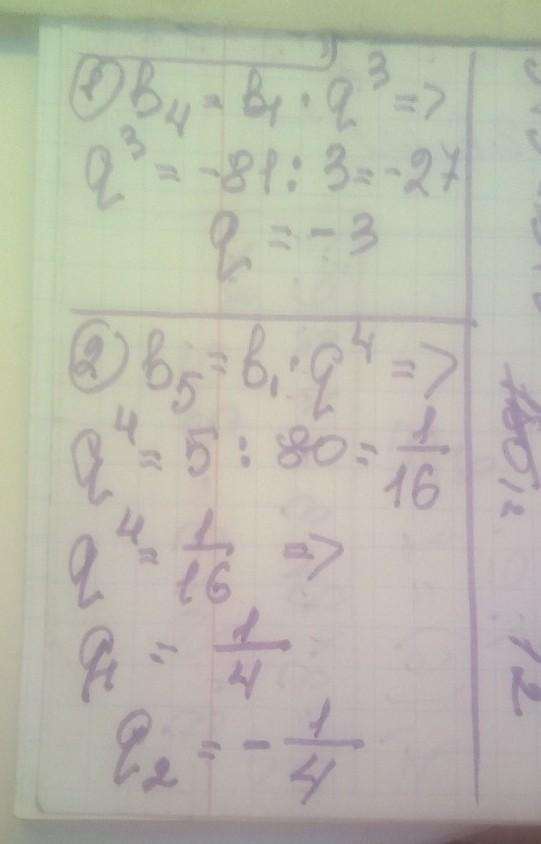 ① b₄ = b₁ · q³ =>
q³ = -81 : 3 = -27
q = -3
② b₅ = b₁ · q⁴ =>
q⁴ = 5 : 80 = 1/16
q⁴ = 1/16 =>
q₁ = 1/4
q₂ = - 1/4
12